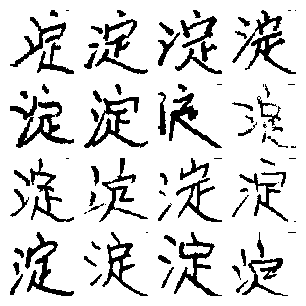 淀淀淀淀
淀淀淀淀
淀淀淀淀
淀淀淀淀